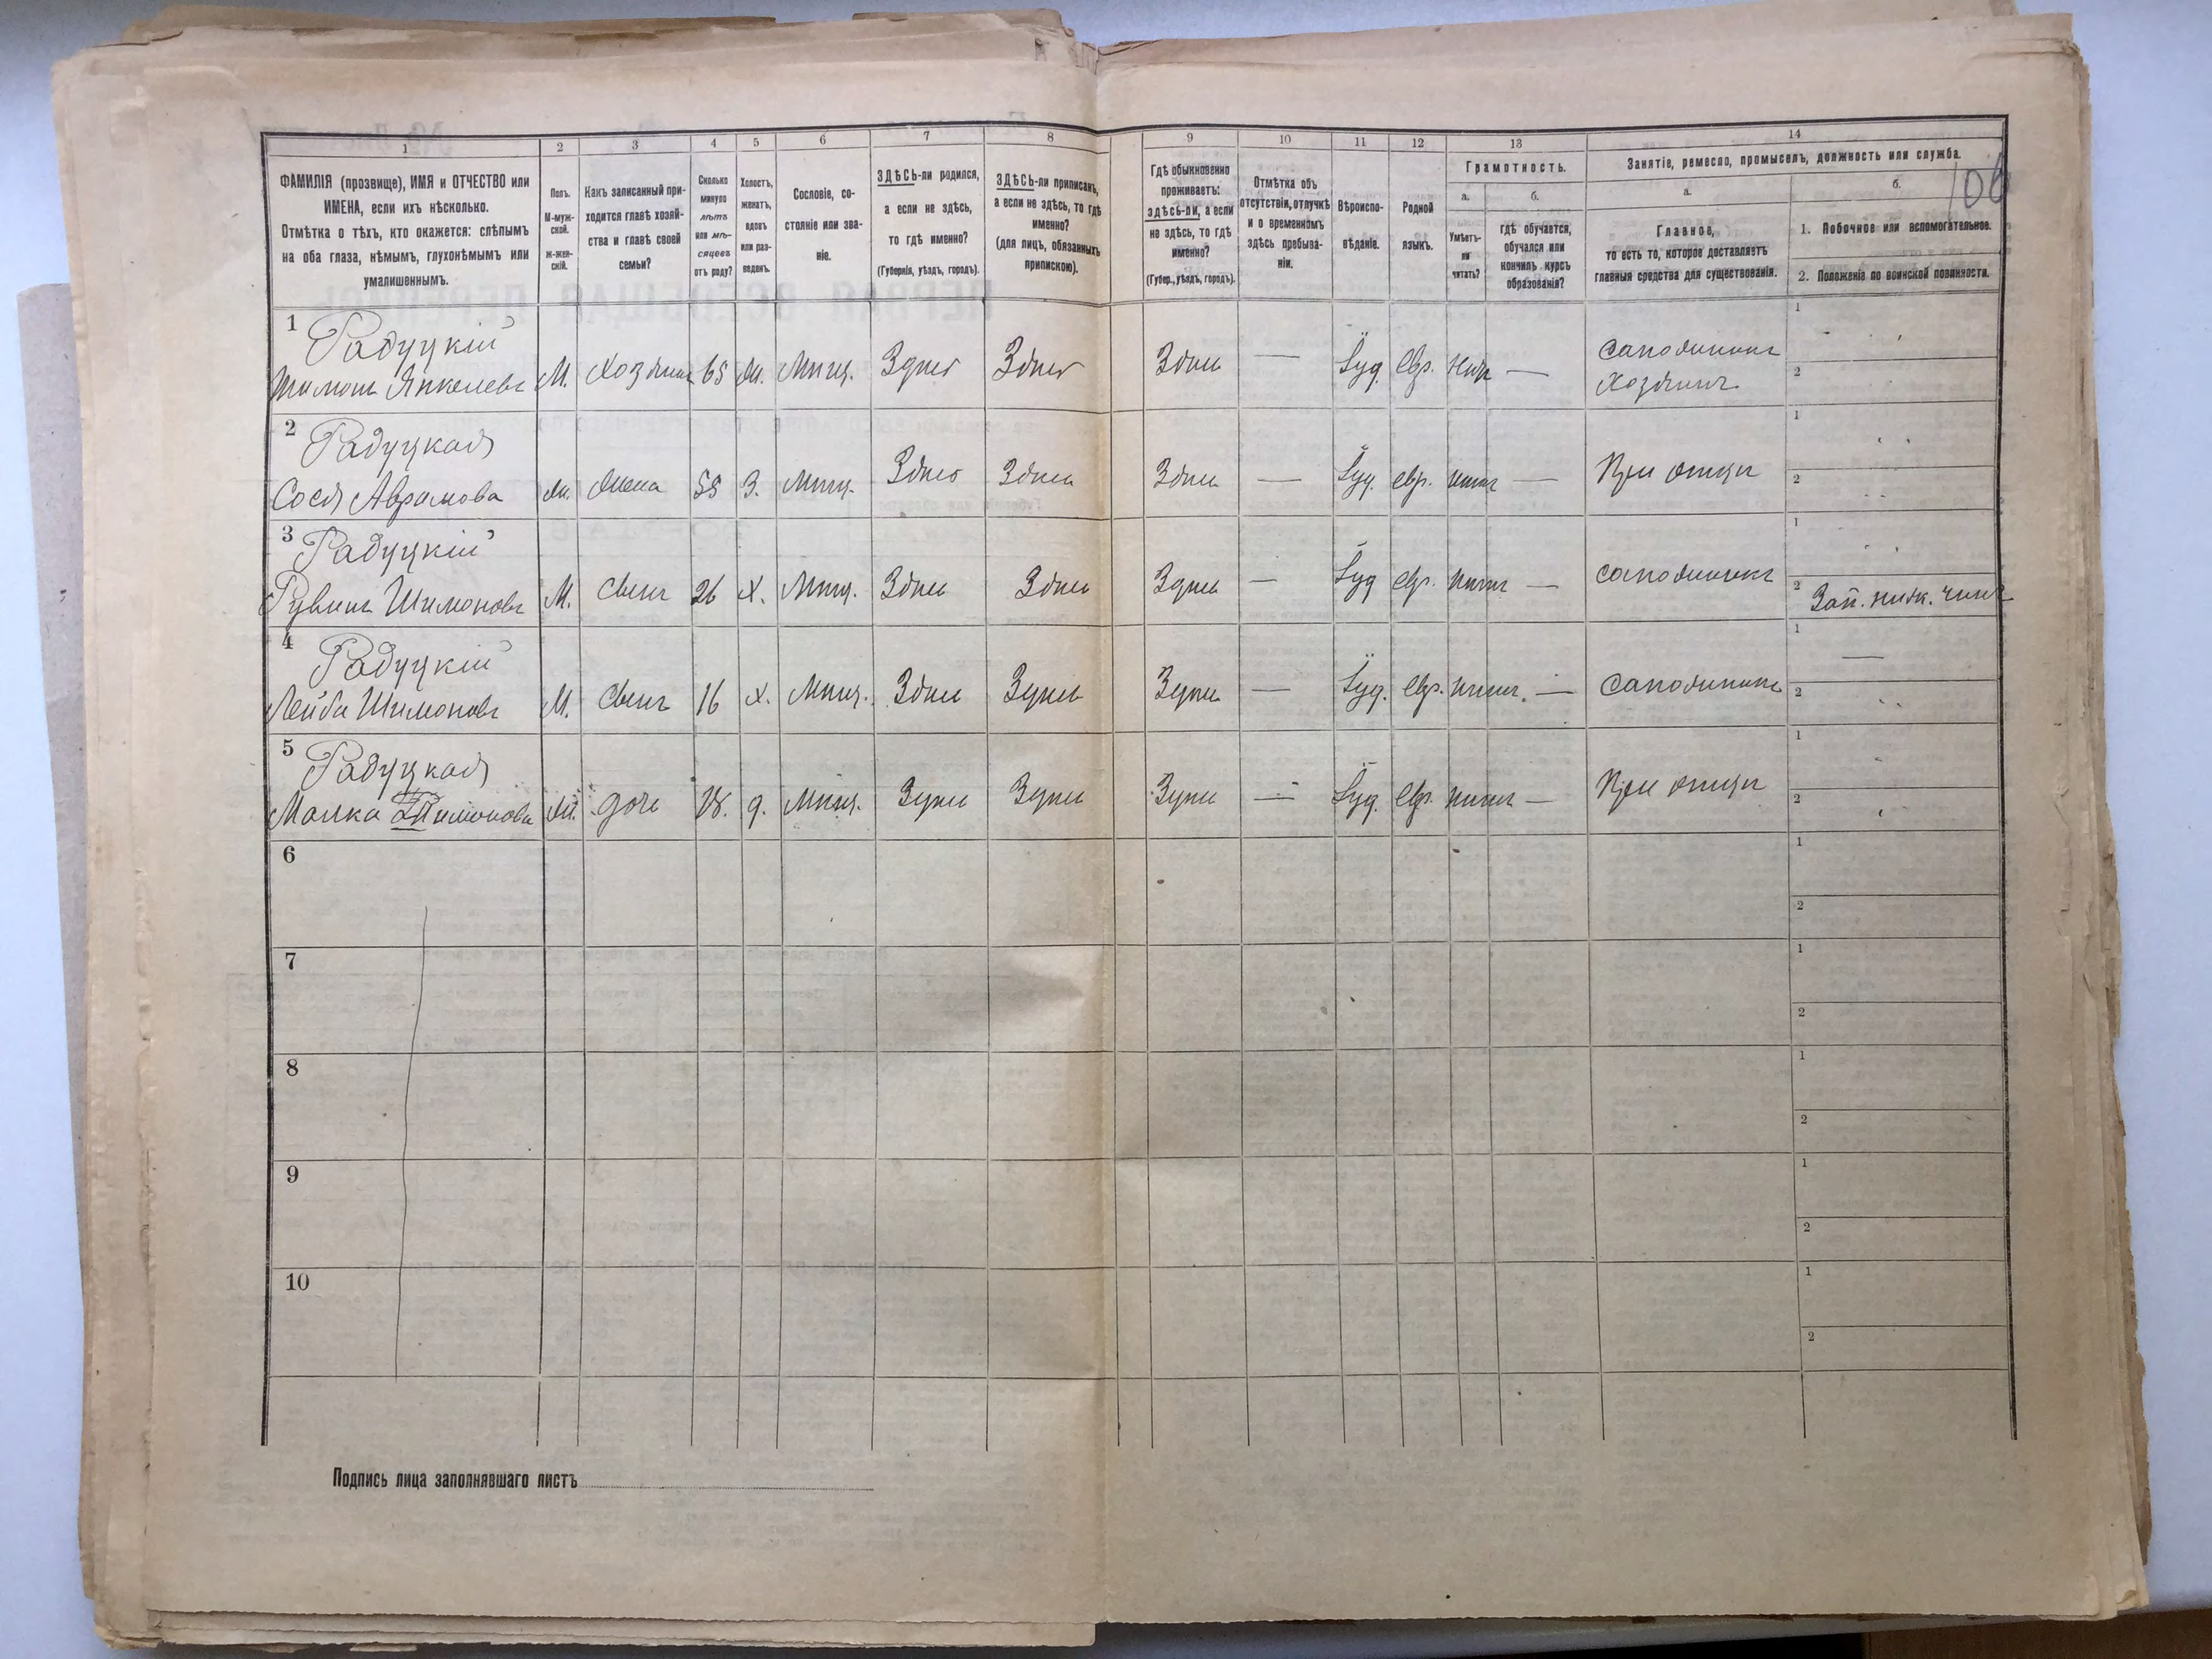 1
2
3
4
5
6
7
8
9
10
11
12
13
14
ФАМИЛІЯ (прозвище), ИМЯ и ОТЧЕСТВО или
ИМЕНА, если ихъ нѣсколько.
Отмѣтка о тѣхъ, кто окажется: слѣпымъ
на оба глаза, нѣмымъ, глухонѣмымъ или
умалишеннымъ.
Полъ.
М-муж-
ской.
Ж-жен-
скій.
Какъ записанный при-
ходится главѣ хозяй-
ства и главѣ своей
семьи?
Сколько
минуло
лѣтъ
или мѣ-
сяцевъ
отъ роду?
Холостъ,
женатъ,
вдовъ
или раз-
веденъ.
Сословіе, со-
стояніе или зва-
ніе.
ЗДѢСЬ-ли родился,
а если не здѣсь,
то гдѣ именно?
(Губернія, уѣздъ, городъ).
ЗДѢСЬ-ли приписанъ,
а если не здѣсь, то гдѣ
именно?
(для лицъ, обязанныхъ
припискою).
Гдѣ обыкновенно
проживаетъ:
ЗДѢСЬ-ЛИ, а если
не здѣсь, то гдѣ
именно?
(Губер., уѣздъ, городъ).
Отмѣтка объ
отсутствіи, отлучкѣ
и о временномъ
здѣсь пребыва-
ніи.
Вѣроиспо-
вѣданіе.
Родной
языкъ.
Грамотность.
а.
Умѣетъ-
ли
читать?
б.
гдѣ обучается,
обучался или
кончилъ курсъ
образованія?
Занятіе, ремесло, промыселъ, должность или служба.
а.
Главное,
то есть то, которое доставляетъ
главныя средства для существованія.
б.
106
1. Побочное или вспомогательное.
2. Положеніе по воинской повинности.
1
Радуцкій
Янкелевъ М. Хозяинъ 65 Мѣщ. Здѣсь Здѣсь Здѣсь — Іуд. Евр. — сапожникъ
хозяинъ
1
2
2
Радуцкая
Сося Аврамова ж. Жена 55 З. Мѣщ. Здѣсь Здѣсь Здѣсь — Іуд. евр. — При отцѣ
1
2
3
Радуцкій
Рувинъ Шимоновъ М. Сынъ 26 Х. Мѣщ. Здѣсь Здѣсь Здѣсь — Іуд Евр. — сапожникъ
1
2 Зап. ниж. чинъ
4
Радуцкій
Лейба Шимоновъ М. Сынъ 16 х. Мѣщ. Здѣсь Здѣсь Здѣсь — Іуд. Евр. — Сапожникъ
1 —
2
5
Радуцкая
Малка Шимонова Ж. дочь 18. д. Мѣщ. Здѣсь Здѣсь Здѣсь — Іуд. Евр. — При отцѣ
1
2
6
1
2
7
1
2
8
1
2
9
1
2
10
1
2
Подпись лица заполнявшаго листъ